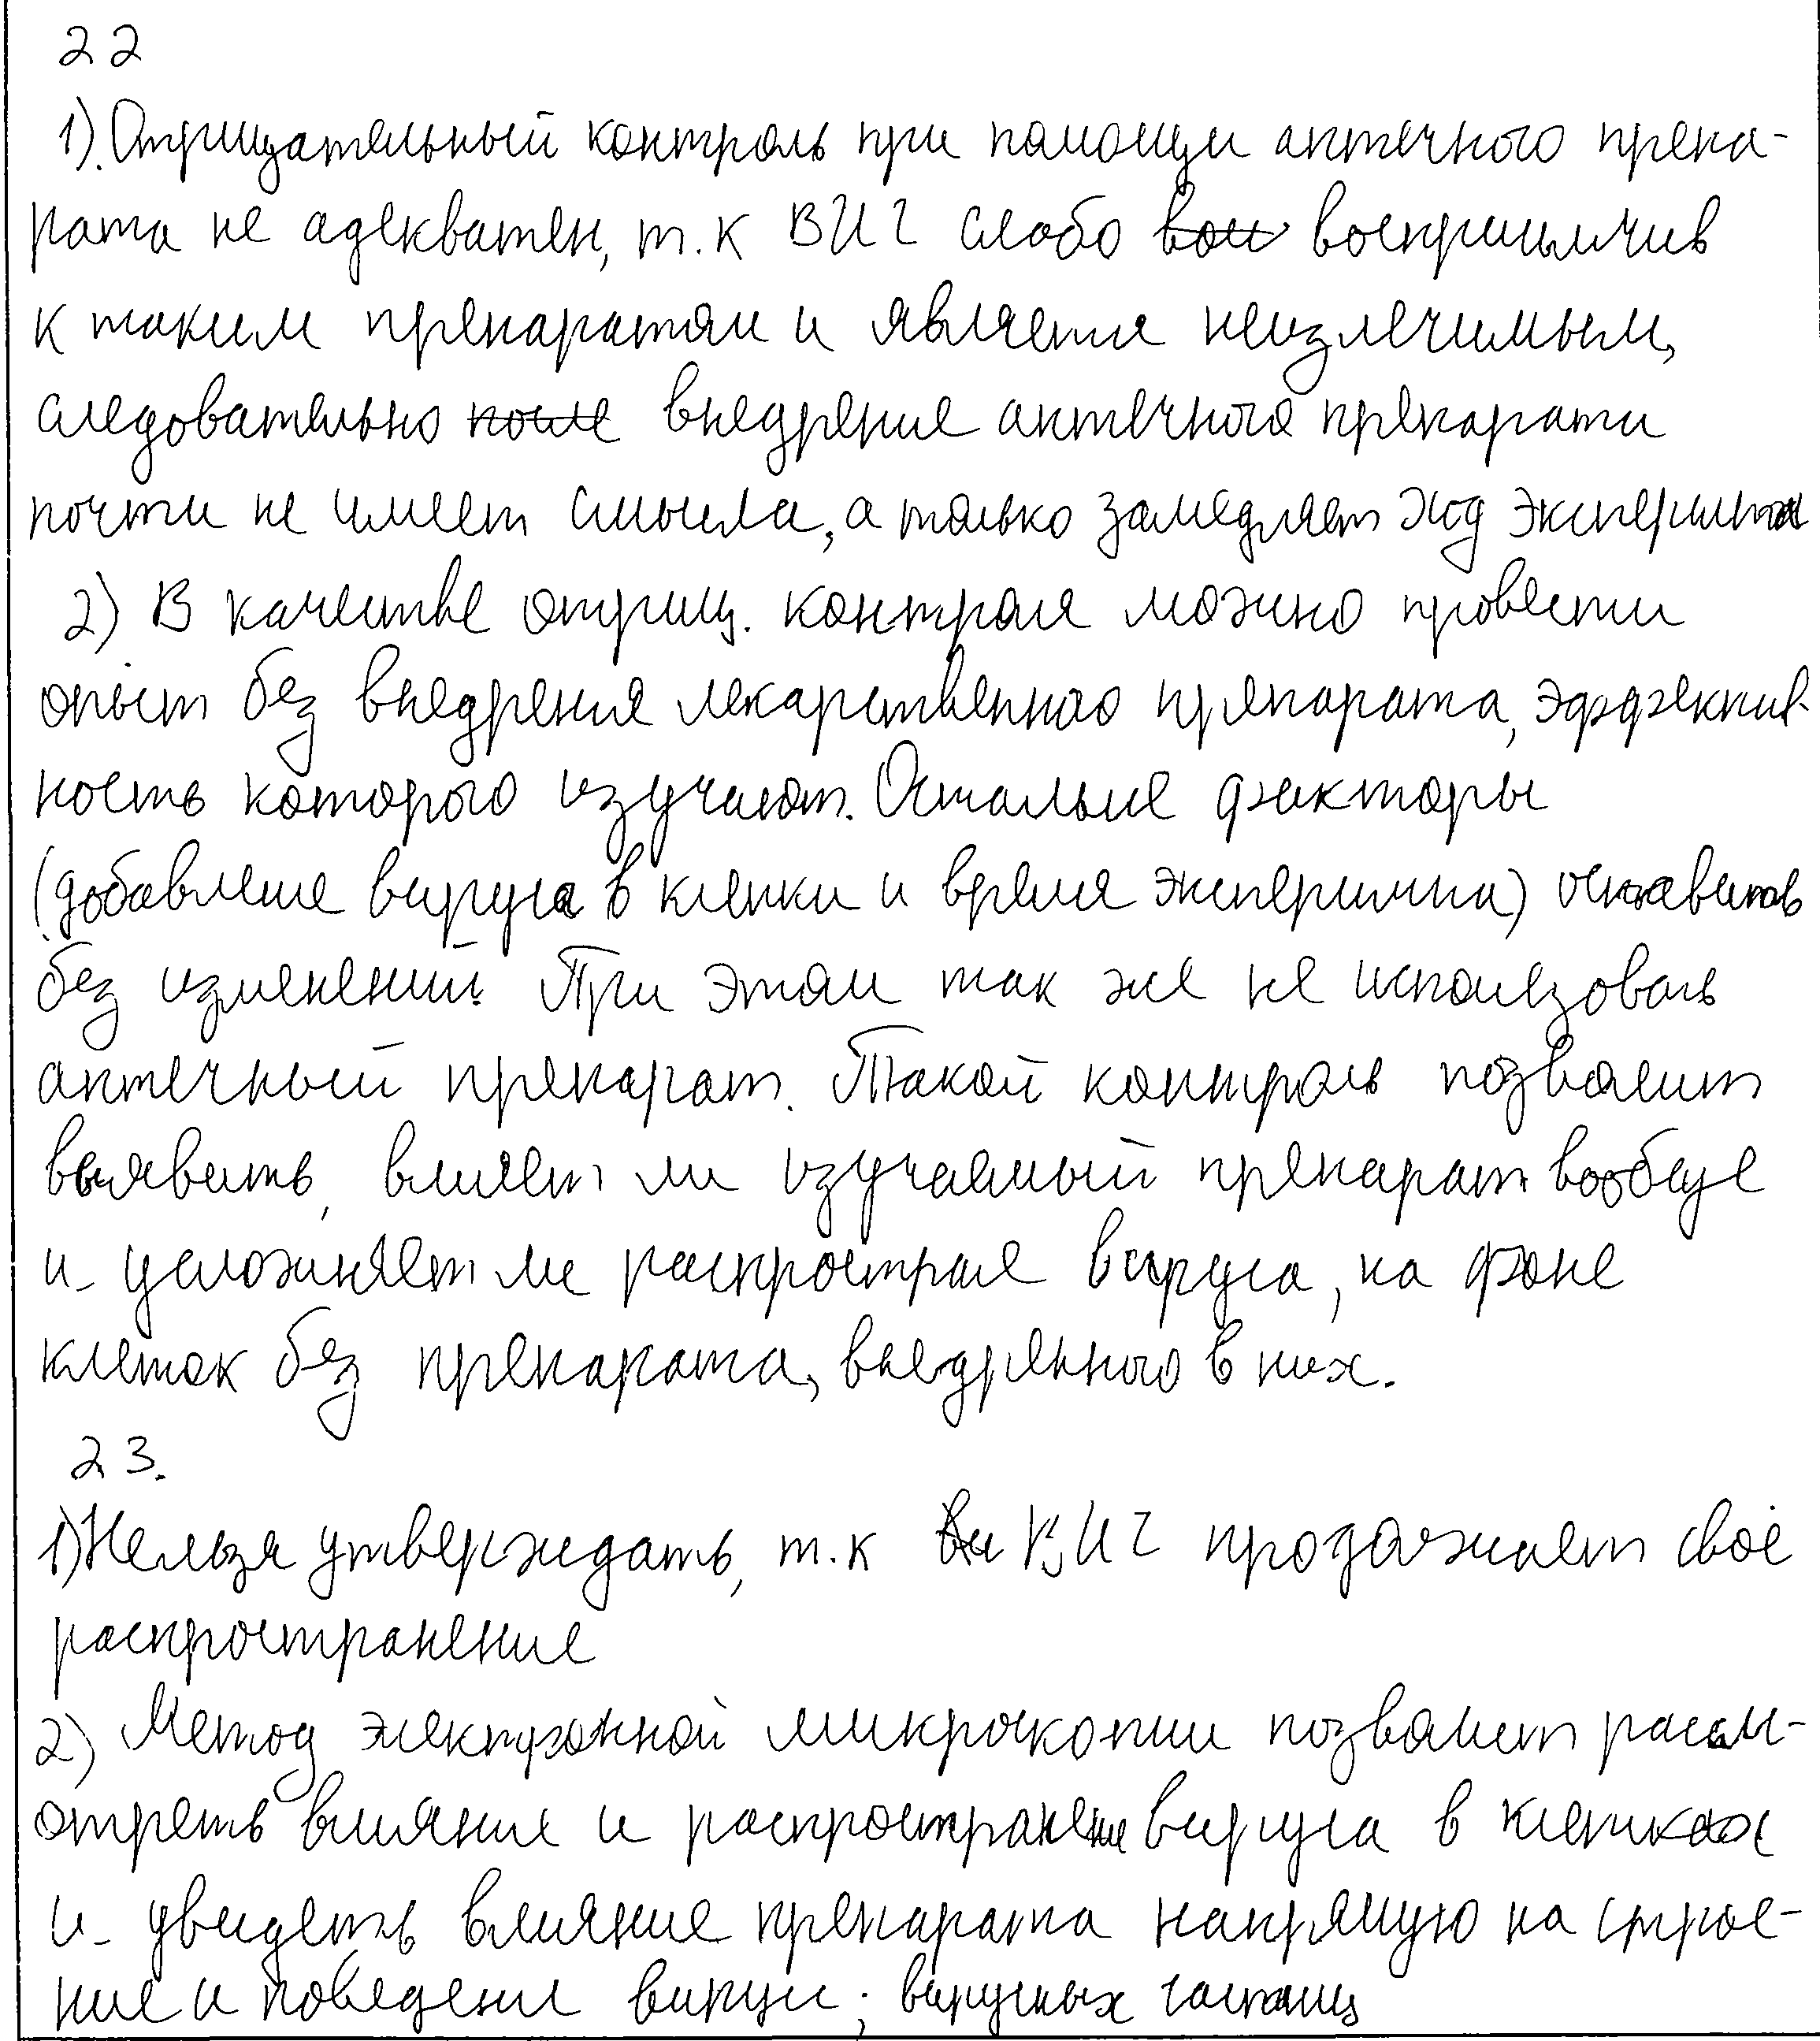 22
1) Отрицательный контроль при помощи аптечного препа-
рата не адекватен, т.к ВИЧ слабо восприимчив
к таким препаратам и является неизлечимым,
следовательно после внедрение аптечного препарата
почти не имеет смысла, а только замедляет ход эксперимента
2) В качестве отриц. контроля можно провести
опыт без внедрения лекарственного препарата, эффектив-
ность которого изучают. Остальные факторы
(добавление вируса в клетки и время эксперимента) оставить
без изменений. При этом так же не использовать
аптечный препарат. Такой контроль позволит
выявить, влияет ли изучаемый препарат вообще
и усложняет ли распростране вируса, на фоне
клеток без препарата, внедренного в них.
23.
1) Нельзя утверждать, т.к ВИЧ продолжает своё
распространение
2) Метод электронной микроскопии позволит рассм-
отреть влияние и распространение вируса в клетках
и увидеть влияние препарата напрямую на строе-
ние и поведение вирус; вирусных частиц